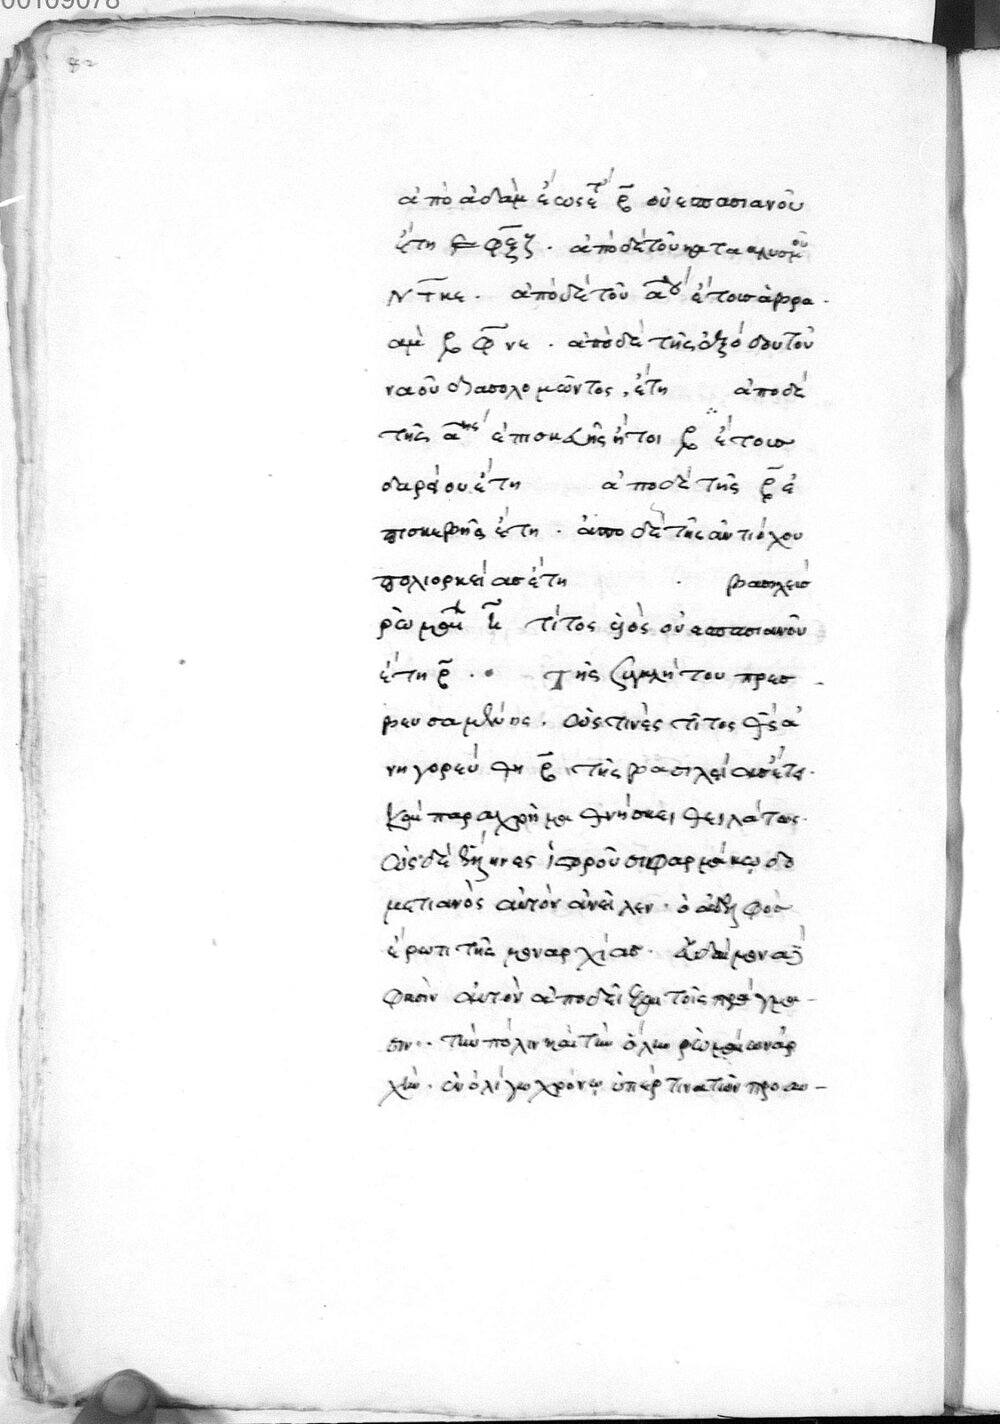 00109078
82
ἀπὸ ἀδὰμ ἕως ἔτ β οὐεσπασιανοῦ
ἔτη ͵εφξζ. ἀπὸ δὲ τοῦ κατακλυσμοῦ
͵γτκε. ἀπὸ δὲ τοῦ α ἔτους ἀβρα
ὰμ ͵βφνε. ἀπὸ δὲ τῆς ἐξόδου τοῦ
ναοῦ σολομῶντος, ἔτη ἀπὸ δὲ
τῆς α ἐπισκευῆς ἤτοι β ἔτους
δαρείου ἔτη ἀπὸ δὲ τῆς β ἐ
πισκευῆς ἔτη. ἀπὸ δὲ τῆς ἀντιόχου
πολιορκείας ἔτη . βασιλεὺς
ῥωμ τίτος υἱὸς οὐεσπασιανοῦ
ἔτη β. Τῆς συγκλήτου πρεσ
βευσαμένης. ὥς τινες τῖτος θεὸς ἀ
νηγορεύθη β τῆς βασιλείας ἔτει.
καὶ παραχρῆμα θνήσκει
ὡς δέ τινες ἱστοροῦσι φαρμάκῳ δο
μετιανὸς αὐτὸν ἀνεῖλεν. ὁ ἀδελφὸς
ἔρωτι τῆς μοναρχίας.
φασὶν αὐτὸν ἀποδεῖξαι τοῖς πράγμα-
σιν. τὴν πόλιν καὶ τὴν ὅλην ῥωμαίων ἀρ
χήν. ἐν ὀλίγῳ χρόνῳ ὑπέρ τινα τῶν προ